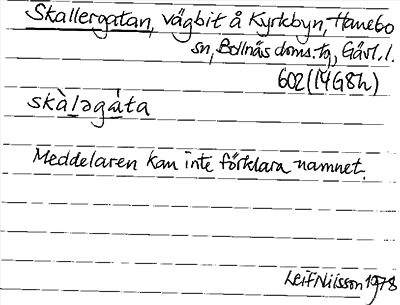 Skallergatan, vägbit å Kyrkbyn, Hanebo
sn, Bollnäs doms. tg, Gävl. l.
602 (14G8h)
skàləgáta
Meddelaren kan inte förklara namnet.
Leif Nilsson 1978